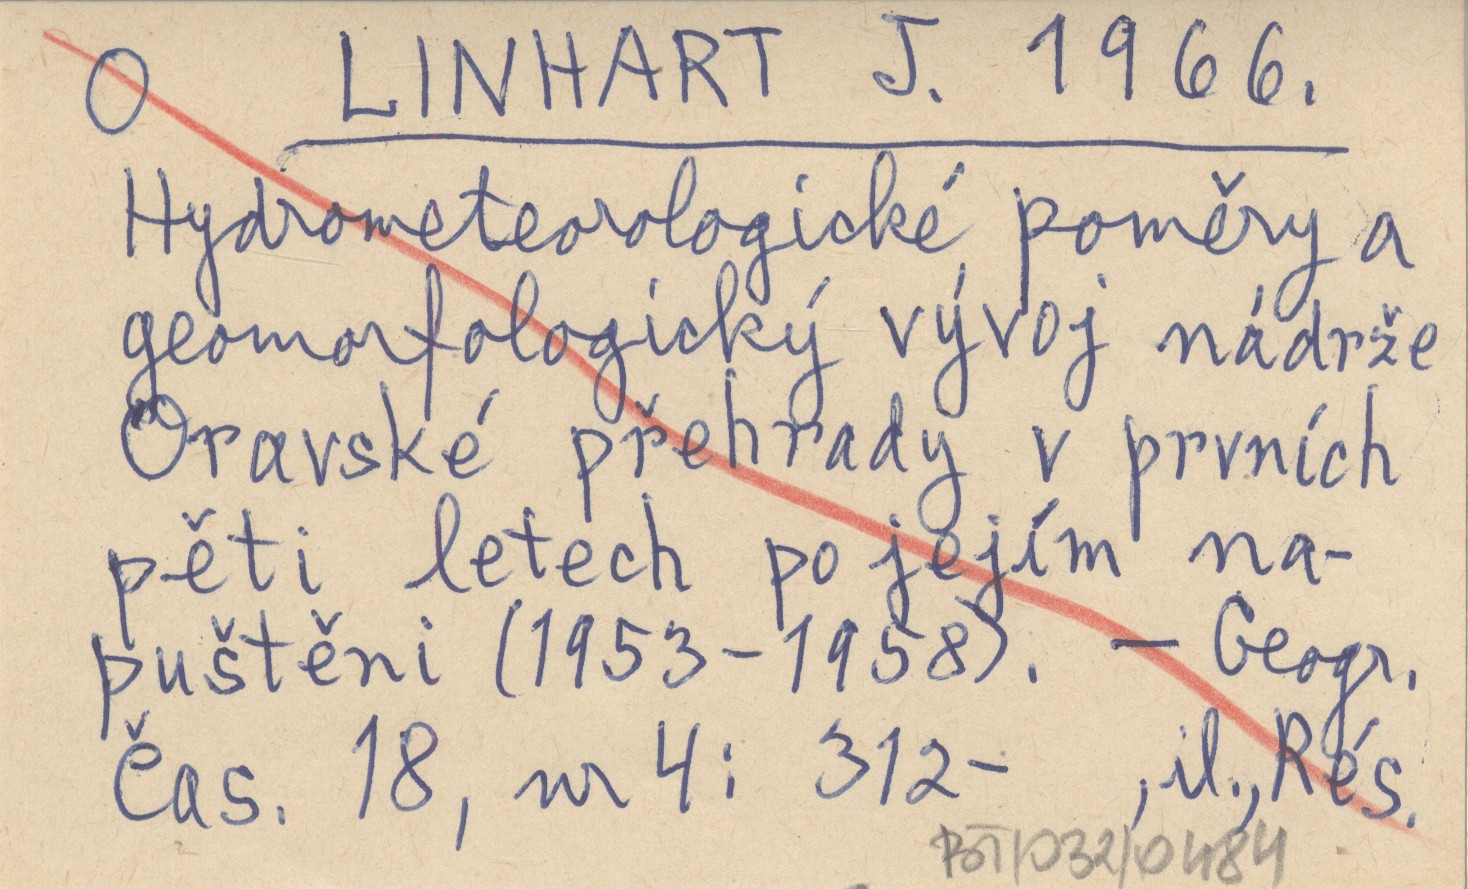 O LINHART J. 1966.
Hydrometeorologické poměry a
geomorfologický vývoj nádrže
Oravské přehrady v prvních
pěti letech po jejím na-
puštěni (1953-1958). - Geogr.
Čas. 18, nr 4: 312- , il., Rés.
BOT/032/0484